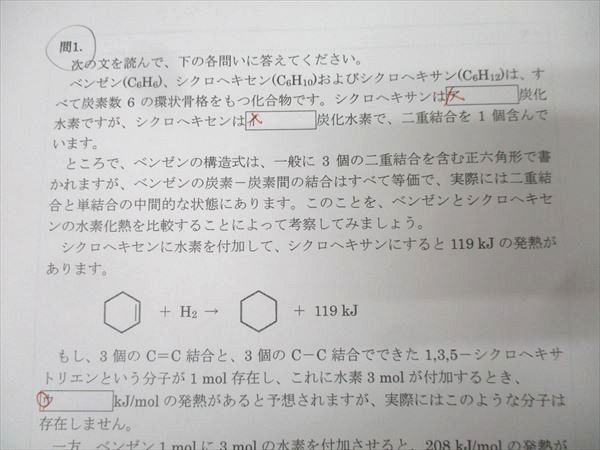 問1.
次の文を読んで、下の各問いに答えてください。
ベンゼン(C₆H₆)、シクロヘキセン(C₆H₁₀)およびシクロヘキサン(C₆H₁₂)は、す
べて炭素数 6 の環状骨格をもつ化合物です。シクロヘキサンは 炭化
水素ですが、シクロヘキセンは 炭化水素で、二重結合を 1 個含んで
います。
ところで、ベンゼンの構造式は、一般に 3 個の二重結合を含む正六角形で書
かれますが、ベンゼンの炭素－炭素間の結合はすべて等価で、実際には二重結
合と単結合の中間的な状態にあります。このことを、ベンゼンとシクロヘキセ
ンの水素化熱を比較することによって考察してみましょう。
シクロヘキセンに水素を付加して、シクロヘキサンにすると 119 kJ の発熱が
あります。
+ H₂ → + 119 kJ
もし、3 個の C＝C 結合と、3 個の C－C 結合でできた 1,3,5－シクロヘキサ
トリエンという分子が 1 mol 存在し、これに水素 3 mol が付加するとき、
kJ/mol の発熱があると予想されますが、実際にはこのような分子は
存在しません。
一方、ベンゼン 1 mol に 3 mol の水素を付加させると、208 kJ/mol の発熱が